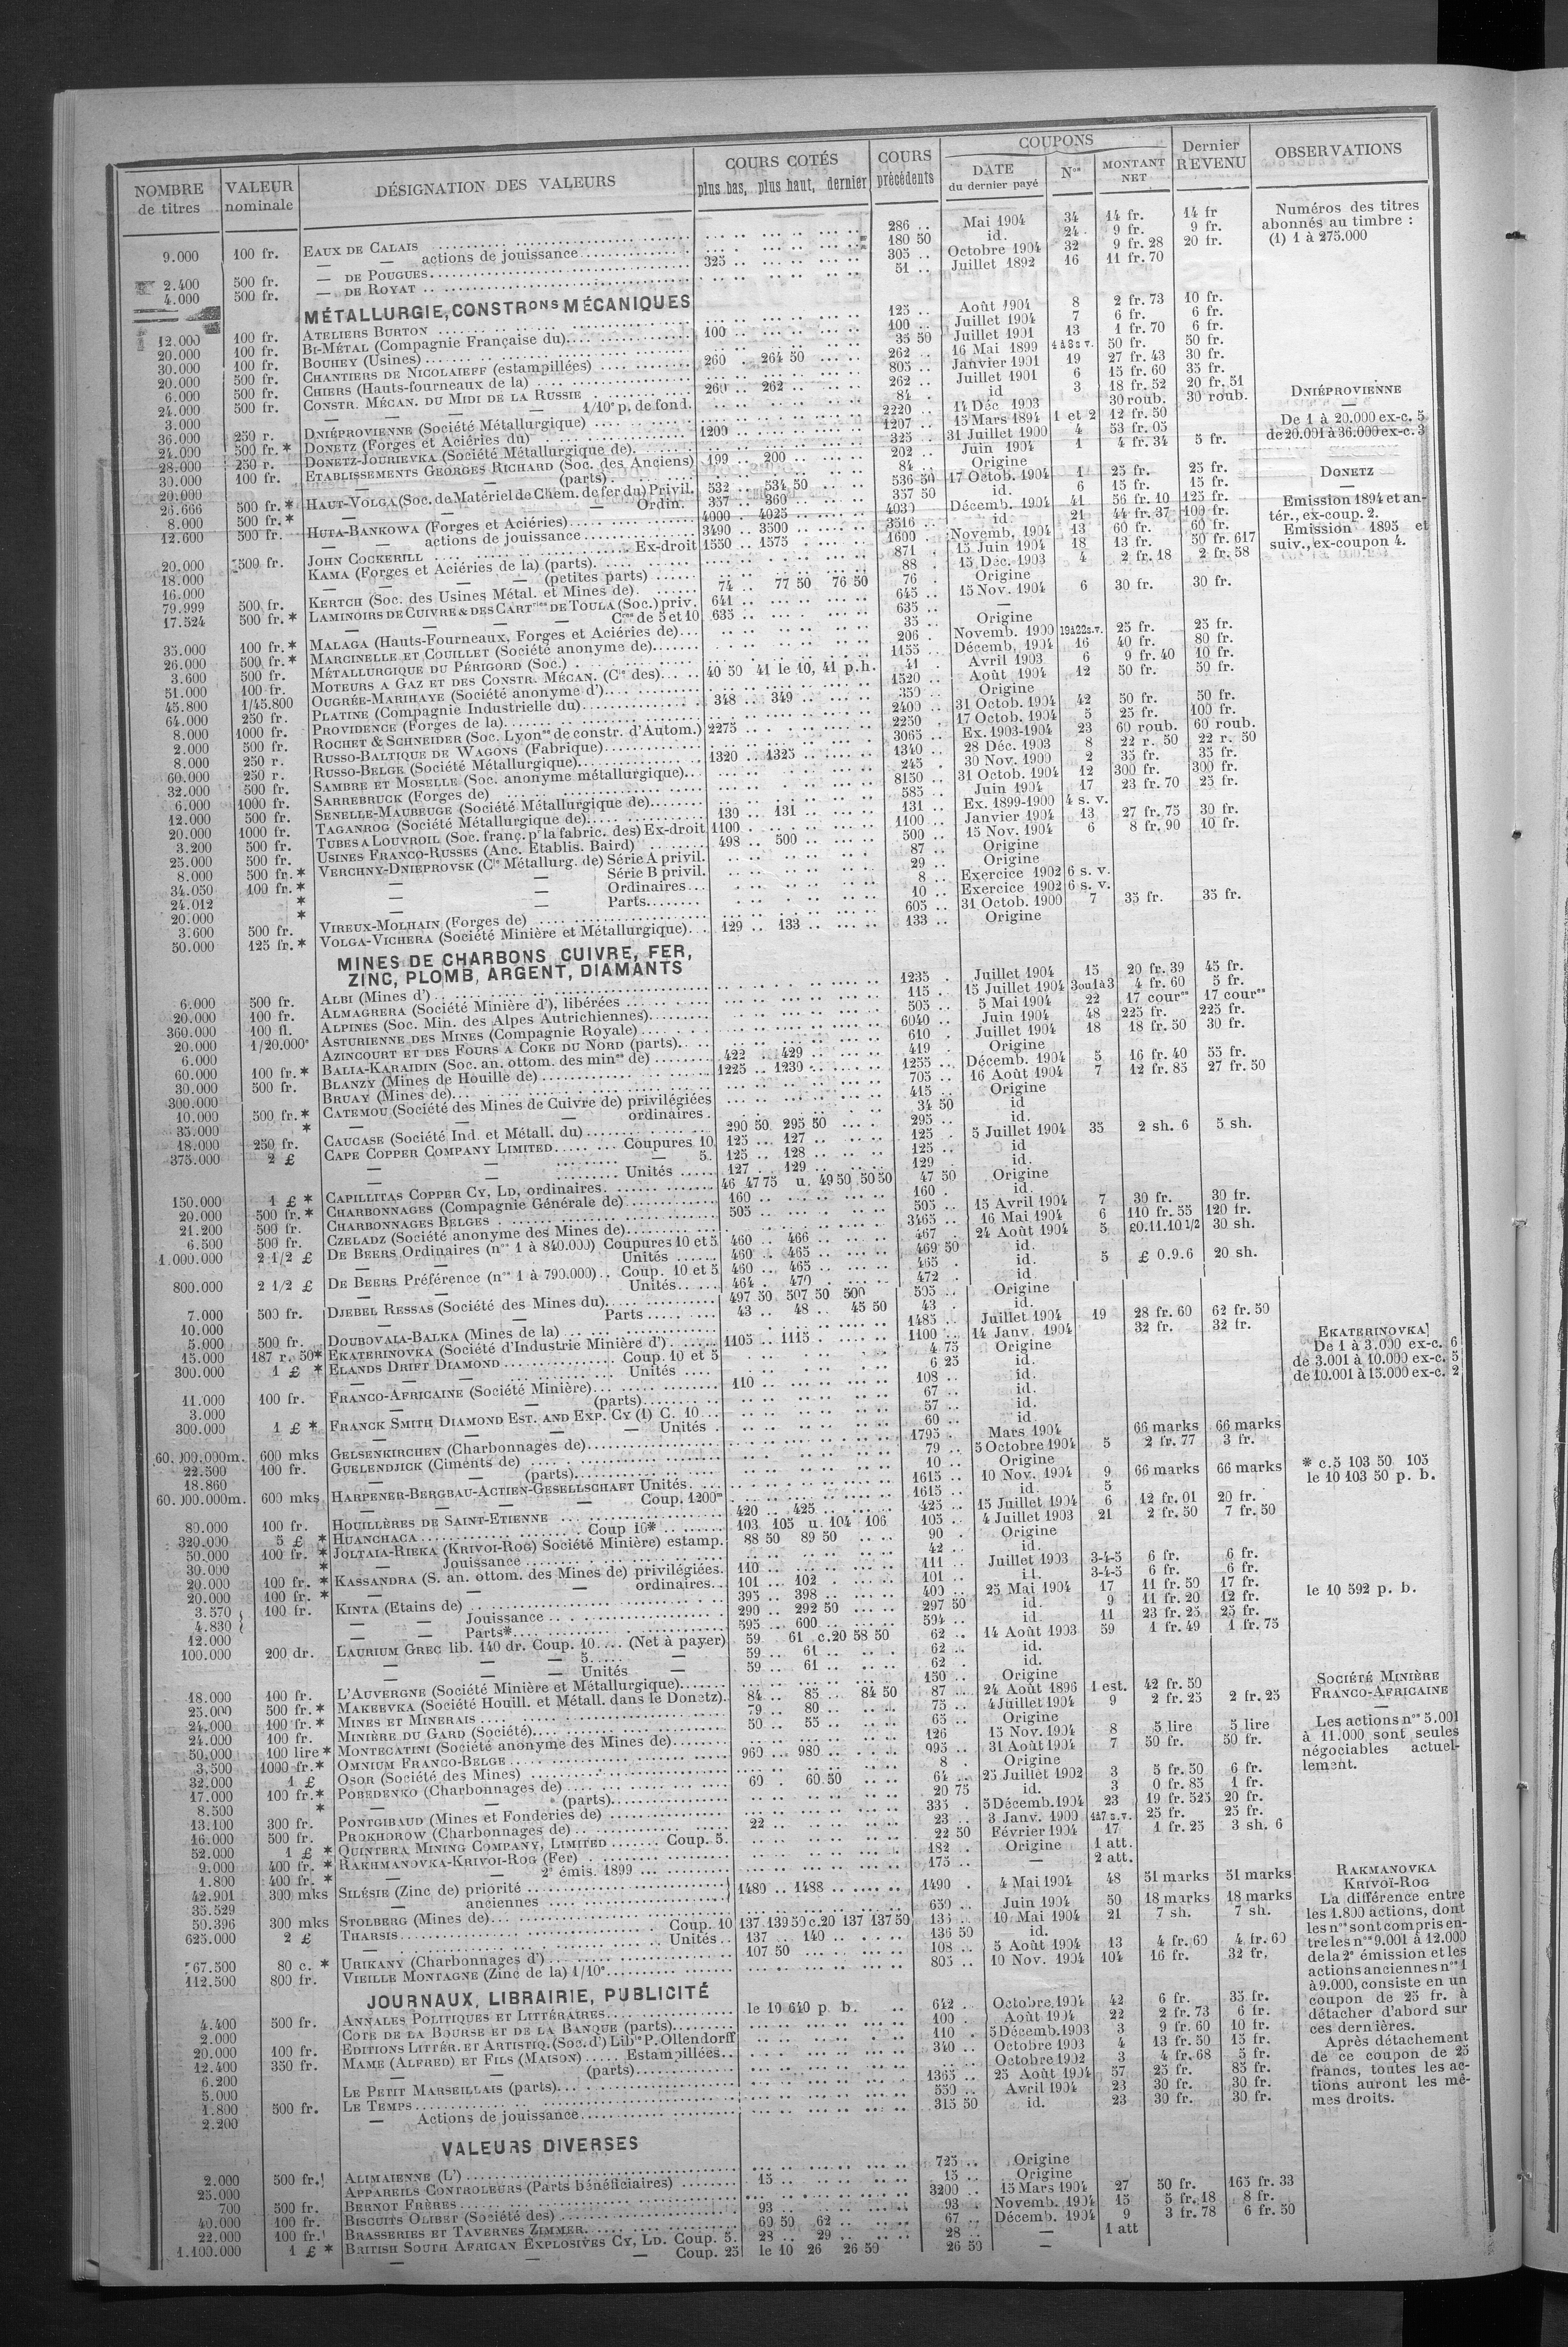 NOMBRE de titres | VALEUR nominale | DÉSIGNATION DES VALEURS | COURS COTÉS plus bas, plus haut, dernier | COURS précédents | COUPONS DATE du dernier payé | Nos | MONTANT NET | Dernier REVENU | OBSERVATIONS
9.000 | 100 fr. | EAUX DE CALAIS | 286 .. | Mai 1904 | 34 | 14 fr. | 14 fr
— — actions de jouissance | 180 50 | id. | 24 | 9 fr. | 9 fr.
2.400 | 500 fr. | — DE POUGUES | 325 .. | 305 .. | Octobre 1904 | 32 | 9 fr. 28 | 20 fr.
4.000 | 500 fr. | — DE ROYAT | 51 .. | Juillet 1892 | 16 | 11 fr. 70
Numéros des titres
abonnés au timbre :
(1) 1 à 275.000
MÉTALLURGIE, CONSTRONS MÉCANIQUES
12.000 | 100 fr. | ATELIERS BURTON | 125 .. | Août 1904 | 8 | 2 fr. 73 | 10 fr.
20.000 | 100 fr. | BI-MÉTAL (Compagnie Française du) | 100 .. | 100 .. | Juillet 1904 | 7 | 6 fr. | 6 fr.
30.000 | 100 fr. | BOUHEY (Usines) | 35 50 | Juillet 1901 | 13 | 1 fr. 70 | 6 fr.
20.000 | 500 fr. | CHANTIERS DE NICOLAIEFF (estampillées) | 260 . 264 50 | 262 .. | 16 Mai 1899 | 4 à 8 s v. | 50 fr. | 50 fr.
6.000 | 500 fr. | CHIERS (Hauts-fourneaux de la) | 805 .. | Janvier 1901 | 19 | 27 fr. 43 | 30 fr.
24.000 | 500 fr. | CONSTR. MÉCAN. DU MIDI DE LA RUSSIE | 260 .. 262 .. | 262 .. | Juillet 1901 | 6 | 15 fr. 60 | 35 fr.
3.000 | — — — 1/10e p. de fond. | 84 . | id | 3 | 18 fr. 52 | 20 fr. 51
36.000 | 250 r. | DNIÉPROVIENNE (Société Métallurgique) | 2220 .. | 14 Déc 1903 | 30 roub. | 30 roub.
24.000 | 500 fr. * | DONETZ (Forges et Aciéries du) | 1200 .. | 1207 .. | 15 Mars 1894 | 1 et 2 | 12 fr. 50
28.000 | 250 r. | DONETZ-JOURIEVKA (Société Métallurgique de) | 325 .. | 31 Juillet 1900 | 4 | 53 fr. 05
30.000 | 100 fr. | ETABLISSEMENTS GEORGES RICHARD (Soc. des Anciens) | 199 .. 200 .. | 202 .. | Juin 1904 | 1 | 4 fr. 34 | 5 fr.
20.000 | — — (parts) | 84 .. | Origine
26.666 | 500 fr. * | HAUT-VOLGA (Soc. de Matériel de Chem. de fer du) Privil. | 532 .. 534 50 | 536 50 | 17 Octob. 1904 | 1 | 25 fr. | 25 fr.
8.000 | 500 fr. * | — — Ordin. | 357 .. 360 .. | 357 50 | id. | 6 | 15 fr. | 15 fr.
12.600 | 500 fr. | HUTA-BANKOWA (Forges et Aciéries) | 4000 . 4025 .. | 4030 | Décemb. 1904 | 41 | 56 fr. 10 | 125 fr.
— — actions de jouissance | 3490 .. 3500 .. | 3516 .. | id. | 21 | 44 fr. 37 | 100 fr.
20.000 | 500 fr. | JOHN COCKERILL Ex-droit | 1550 .. 1575 | 1600 .. | Novemb. 1904 | 13 | 60 fr. | 60 fr.
18.000 | KAMA (Forges et Aciéries de la) (parts) | 871 . | 15 Juin 1904 | 18 | 13 fr. | 50 fr. 617
16.000 | — — (petites parts) | 88 . | 15 Déc. 1903 | 4 | 2 fr. 18 | 2 fr. 58
79.999 | 500 fr. | KERTCH (Soc. des Usines Métal. et Mines de) | 74 .. 77 50 76 50 | 76 . | Origine
17.524 | 500 fr. * | LAMINOIRS DE CUIVRE & DES CARTries DE TOULA (Soc.) priv. | 641 .. | 645 .. | 15 Nov. 1904 | 6 | 30 fr. | 30 fr.
— — — Cres de 5 et 10 | 635 .. | 635 .. | —
35.000 | 100 fr. * | MALAGA (Hauts-Fourneaux, Forges et Aciéries de) | 35 .. | Origine
26.000 | 500 fr. * | MARCINELLE ET COUILLET (Société anonyme de) | 206 . | Novemb. 1900 | 19 à 22 s.v. | 25 fr. | 25 fr.
3.600 | 500 fr. | MÉTALLURGIQUE DU PÉRIGORD (Soc.) | 1155 .. | Décemb. 1904 | 16 | 40 fr. | 80 fr.
51.000 | 100 fr. | MOTEURS A GAZ ET DES CONSTR. MÉCAN. (Cie des) | 40 50 41 le 10, 41 p.h. | 41 . | Avril 1903 | 6 | 9 fr. 40 | 10 fr.
45.800 | 1/45.800 | OUGRÉE-MARIHAYE (Société anonyme d') | 1520 .. | Août 1904 | 12 | 50 fr. | 50 fr.
64.000 | 250 fr. | PLATINE (Compagnie Industrielle du) | 348 .. 349 .. | 350 .. | Origine
8.000 | 1000 fr. | PROVIDENCE (Forges de la) | 2400 .. | 31 Octob. 1904 | 42 | 50 fr. | 50 fr.
2.000 | 500 fr. | ROCHET & SCHNEIDER (Soc. Lyonse de constr. d'Autom.) | 2275 .. | 2250 . | 17 Octob. 1904 | 5 | 25 fr. | 100 fr.
8.000 | 250 r. | RUSSO-BALTIQUE DE WAGONS (Fabrique) | 3065 .. | Ex. 1903-1904 | 23 | 60 roub. | 60 roub.
60.000 | 250 r. | RUSSO-BELGE (Société Métallurgique) | 1320 .. 1325 .. | 1340 .. | 28 Déc. 1903 | 8 | 22 r. 50 | 22 r. 50
32.000 | 500 fr. | SAMBRE ET MOSELLE (Soc. anonyme métallurgique) | 245 . | 30 Nov. 1900 | 2 | 35 fr. | 35 fr.
6.000 | 1000 fr. | SARREBRUCK (Forges de) | 8150 .. | 31 Octob. 1904 | 12 | 300 fr. | 300 fr.
12.000 | 500 fr. | SENELLE-MAUBEUGE (Société Métallurgique de) | 585 .. | Juin 1904 | 17 | 23 fr. 70 | 25 fr.
20.000 | 1000 fr. | TAGANROG (Société Métallurgique de) | 130 .. 131 .. | 131 .. | Ex. 1899-1900 | 4 s. v.
3.200 | 500 fr. | TUBES A LOUVROIL (Soc. franç. pr la fabric. des) Ex-droit | 1100 . | 1100 .. | Janvier 1904 | 13 | 27 fr. 75 | 30 fr.
25.000 | 500 fr. | USINES FRANCO-RUSSES (Anc. Etablis. Baird) | 498 .. 500 .. | 500 .. | 15 Nov. 1904 | 6 | 8 fr. 90 | 10 fr.
8.000 | 500 fr. * | VERCHNY-DNIEPROVSK (Cie Métallurg. de) Série A privil. | 87 .. | Origine
34.050 | 100 fr. * | — — Série B privil. | 29 .. | Origine
24.012 | * | — — Ordinaires | 8 .. | Exercice 1902 | 6 s. v.
20.000 | * | — — Parts | 10 .. | Exercice 1902 | 6 s. v.
3.600 | 500 fr. | VIREUX-MOLHAIN (Forges de) | 605 .. | 31 Octob. 1900 | 7 | 35 fr. | 35 fr.
50.000 | 125 fr. * | VOLGA-VICHERA (Société Minière et Métallurgique) | 129 .. 133 .. | 133 .. | Origine
DNIÉPROVIENNE
—
De 1 à 20.000 ex-c. 5
de 20.001 à 36.000 ex-c. 3
DONETZ
—
Emission 1894 et an-
tér., ex-coup. 2.
Emission 1895 et
suiv., ex-coupon 4.
MINES DE CHARBONS, CUIVRE, FER,
ZINC, PLOMB, ARGENT, DIAMANTS
6.000 | 500 fr. | ALBI (Mines d') | 1235 . | Juillet 1904 | 15 | 20 fr. 39 | 45 fr.
20.000 | 100 fr. | ALMAGRERA (Société Minière d'), libérées | 115 . | 15 Juillet 1904 | 3 ou 1 à 3 | 4 fr. 60 | 5 fr.
360.000 | 100 fl. | ALPINES (Soc. Min. des Alpes Autrichiennes) | 505 .. | 5 Mai 1904 | 22 | 17 coures | 17 coures
20.000 | 1/20.000e | ASTURIENNE DES MINES (Compagnie Royale) | 6040 .. | Juin 1904 | 48 | 225 fr. | 225 fr.
6.000 | AZINCOURT ET DES FOURS A COKE DU NORD (parts) | 610 . | Juillet 1904 | 18 | 18 fr. 50 | 30 fr.
60.000 | 100 fr. * | BALIA-KARAIDIN (Soc. an. ottom. des mines de) | 422 .. 429 .. | 419 . | Origine
30.000 | 500 fr. | BLANZY (Mines de Houille de) | 1225 .. 1230 . | 1255 .. | Décemb. 1904 | 5 | 16 fr. 40 | 55 fr.
300.000 | BRUAY (Mines de) | 705 .. | 16 Août 1904 | 7 | 12 fr. 85 | 27 fr. 50
10.000 | 500 fr. * | CATEMOU (Société des Mines de Cuivre de) privilégiées | 415 .. | Origine
35.000 | * | — — — ordinaires | 34 50 | id
18.000 | 250 fr. | CAUCASE (Société Ind. et Métall. du) | 290 50 295 50 | 295 .. | id.
375.000 | 2 £ | CAPE COPPER COMPANY LIMITED Coupures 10 | 125 .. 127 .. | 125 . | 5 Juillet 1904 | 35 | 2 sh. 6 | 5 sh.
— — — 5 | 125 .. 128 .. | 125 .. | id
— — Unités | 127 . 129 .. | 129 . | id.
150.000 | 1 £ * | CAPILLITAS COPPER CY, LD, ordinaires | 46 47 75 u. 49 50 50 50 | 47 50 | Origine
20.000 | 500 fr. * | CHARBONNAGES (Compagnie Générale de) | 160 .. | 160 . | id.
21.200 | 500 fr. | CHARBONNAGES BELGES | 505 .. | 505 .. | 15 Avril 1904 | 7 | 30 fr. | 30 fr.
6.500 | 500 fr. | CZELADZ (Société anonyme des Mines de) | 3465 .. | 16 Mai 1904 | 6 | 110 fr. 55 | 120 fr.
1.000.000 | 2 1/2 £ | DE BEERS Ordinaires (nos 1 à 840.000) Coupures 10 et 5 | 460 .. 466 .. | 467 . | 24 Août 1904 | 5 | £0.11.10 1/2 | 30 sh.
— — Unités | 460 . 465 .. | 469 50 | id.
800.000 | 2 1/2 £ | DE BEERS Préférence (nos 1 à 790.000) Coup. 10 et 5 | 460 .. 465 .. | 465 . | id. | 5 | £ 0.9.6 | 20 sh.
— — Unités | 464 . 470 . | 472 . | id.
7.000 | 500 fr. | DJEBEL RESSAS (Société des Mines du) | 497 50 507 50 500 | 505 .. | Origine
10.000 | — — Parts | 43 .. 48 .. 45 50 | 43 . | id.
5.000 | 500 fr. | DOUBOVAIA-BALKA (Mines de la) | 1485 .. | Juillet 1904 | 19 | 28 fr. 60 | 62 fr. 50
15.000 | 187 r. 50* | EKATERINOVKA (Société d'Industrie Minière d') | 1105 .. 1115 . | 1100 .. | 14 Janv. 1904 | 32 fr. | 32 fr.
300.000 | 1 £ * | ELANDS DRIFT DIAMOND Coup. 10 et 5 | 4 75 | Origine
— — — Unités | 6 25 | id.
11.000 | 100 fr. | FRANCO-AFRICAINE (Société Minière) | 110 .. | 108 .. | id.
3.000 | — — (parts) | 67 .. | id.
300.000 | 1 £ * | FRANCK SMITH DIAMOND EST. AND EXP. CY (1) C. 10 | 57 .. | id.
— — — Unités | 60 .. | id.
60.000.000m. | 600 mks | GELSENKIRCHEN (Charbonnages de) | 1795 . | Mars 1904 | 66 marks | 66 marks
22.500 | 100 fr. | GUELENDJICK (Ciments de) | 79 .. | 5 Octobre 1904 | 5 | 2 fr. 77 | 3 fr.
18.860 | — (parts) | 10 .. | Origine
60.000.000m. | 600 mks | HARPENER-BERGBAU-ACTIEN-GESELLSCHAFT Unités | 1615 .. | 10 Nov. 1904 | 9 | 66 marks | 66 marks
— — — Coup. 1200m | 1615 .. | id. | 5
80.000 | 100 fr. | HOUILLÈRES DE SAINT-ETIENNE | 420 .. 425 .. | 425 .. | 15 Juillet 1904 | 6 | 12 fr. 01 | 20 fr.
320.000 | 5 £ * | HUANCHACA Coup 10* | 103 105 u. 104 106 | 105 .. | 4 Juillet 1903 | 21 | 2 fr. 50 | 7 fr. 50
50.000 | 100 fr. * | JOLTAIA-RIEKA (KRIVOI-ROG) Société Minière) estamp. | 88 50 89 50 | 90 . | Origine
30.000 | * | — Jouissance | 42 .. | id.
20.000 | 100 fr. * | KASSANDRA (S. an. ottom. des Mines de) privilégiées | 110 .. | 111 .. | Juillet 1903 | 3-4-5 | 6 fr. | 6 fr.
20.000 | 100 fr. * | — — ordinaires | 101 .. 102 . | 101 .. | id. | 3-4-5 | 6 fr. | 6 fr.
3.570 | 100 fr. | KINTA (Etains de) | 395 .. 398 .. | 400 .. | 25 Mai 1904 | 17 | 11 fr. 50 | 17 fr.
4.830 | — — Jouissance | 290 .. 292 50 | 297 50 | id. | 9 | 11 fr. 20 | 12 fr.
12.000 | — — Parts* | 595 .. 600 .. | 594 .. | id. | 11 | 23 fr. 25 | 25 fr.
100.000 | 200 dr. | LAURIUM GREC lib. 140 dr. Coup. 10 (Net à payer) | 59 61 c.20 58 50 | 62 .. | 14 Août 1903 | 59 | 1 fr. 49 | 1 fr. 75
— — — 5 — | 59 .. 61 .. | 62 .. | id.
— — — Unités — | 59 .. 61 .. | 62 . | id.
18.000 | 100 fr. | L'AUVERGNE (Société Minière et Métallurgique) | 150 .. | Origine
25.000 | 500 fr. * | MAKEEVKA (Société Houill. et Métall. dans le Donetz) | 84 .. 85 .. 84 50 | 87 .. | 24 Août 1896 | 1 est. | 42 fr. 50
24.000 | 100 fr. * | MINES ET MINERAIS | 79 .. 80 .. | 75 .. | 4 Juillet 1904 | 9 | 2 fr. 25 | 2 fr. 25
24.000 | 100 fr. | MINIÈRE DU GARD (Société) | 50 .. 55 .. | 65 .. | Origine
50.000 | 100 lire * | MONTECATINI (Société anonyme des Mines de) | 126 | 15 Nov. 1904 | 8 | 5 lire | 5 lire
3.500 | 1000 fr. * | OMNIUM FRANCO-BELGE | 960 .. 980 .. | 995 .. | 31 Août 1904 | 7 | 50 fr. | 50 fr.
32.000 | 1 £ | OSOR (Société des Mines) | 8 . | Origine
17.000 | 100 fr. * | POBEDENKO (Charbonnages de) | 60 . 60.50 | 64 .. | 25 Juillet 1902 | 3 | 5 fr. 50 | 6 fr.
8.500 | * | — — (parts) | 20 75 | id. | 3 | 0 fr. 85 | 1 fr.
13.100 | 300 fr. | PONTGIBAUD (Mines et Fonderies de) | 335 . | 5 Décemb. 1904 | 23 | 19 fr. 525 | 20 fr.
16.000 | 500 fr. | PROKHOROW (Charbonnages de) | 22 .. | 23 .. | 3 Janv. 1900 | 4 à 7 s.v. | 25 fr. | 25 fr.
52.000 | 1 £ * | QUINTERA MINING COMPANY, LIMITED Coup. 5 | 22 50 | Février 1904 | 17 | 1 fr. 25 | 3 sh. 6
9.000 | 400 fr. * | RAKHMANOVKA-KRIVOI-ROG (Fer) | 182 . | Origine | 1 att.
1.800 | 400 fr. * | — — 2e émis. 1899 | 175 .. | — | 2 att.
42.901 | 300 mks | SILÉSIE (Zinc de) priorité | 1480 .. 1488 .. | 1490 . | 4 Mai 1904 | 48 | 51 marks | 51 marks
35.529 | — anciennes
50.396 | 300 mks | STOLBERG (Mines de) | 650 .. | Juin 1904 | 50 | 18 marks | 18 marks
625.000 | 2 £ | THARSIS Coup. 10 | 137 139 50 c.20 137 137 50 | 135 .. | 10 Mai 1904 | 21 | 7 sh. | 7 sh.
— Unités | 137 .. 140 .. | 136 50 | id.
67.500 | 80 c. * | URIKANY (Charbonnages d') | 107 50 | 108 .. | 5 Août 1904 | 13 | 4 fr. 60 | 4 fr. 60
112.500 | 800 fr. | VIEILLE MONTAGNE (Zinc de la) 1/10e | 805 .. | 10 Nov. 1904 | 104 | 16 fr. | 32 fr.
EKATERINOVKA
De 1 à 3.000 ex-c. 6
de 3.001 à 10.000 ex-c. 5
de 10.001 à 15.000 ex-c. 2
* c.5 103 50 105
le 10 103 50 p. b.
le 10 592 p. b.
SOCIÉTÉ MINIÈRE
FRANCO-AFRICAINE
—
Les actions nos 5.001
à 11.000 sont seules
négociables actuel-
lement.
RAKMANOVKA
KRIVOÏ-ROG
La différence entre
les 1.800 actions, dont
les nos sont compris en-
tre les nos 9.001 à 12.000
de la 2e émission et les
actions anciennes nos 1
à 9.000, consiste en un
coupon de 25 fr. à
détacher d'abord sur
ces dernières.
Après détachement
de ce coupon de 25
francs, toutes les ac-
tions auront les mê-
mes droits.
JOURNAUX, LIBRAIRIE, PUBLICITÉ
4.400 | 500 fr. | ANNALES POLITIQUES ET LITTÉRAIRES | le 10 640 p. b. | 642 . | Octobre 1904 | 42 | 6 fr. | 35 fr.
2.000 | COTE DE LA BOURSE ET DE LA BANQUE (parts) | 100 . | Août 1904 | 22 | 2 fr. 73 | 6 fr.
20.000 | 100 fr. | EDITIONS LITTÉR. ET ARTISTIQ. (Soc. d') Libie P. Ollendorff | 110 . | 5 Décemb. 1903 | 3 | 9 fr. 60 | 10 fr.
12.400 | 350 fr. | MAME (ALFRED) ET FILS (MAISON) Estampillées | 340 .. | Octobre 1903 | 4 | 13 fr. 50 | 15 fr.
6.200 | — — (parts) | Octobre 1902 | 3 | 4 fr. 68 | 5 fr.
5.000 | LE PETIT MARSEILLAIS (parts) | 1365 .. | 25 Août 1904 | 57 | 25 fr. | 85 fr.
1.800 | 500 fr. | LE TEMPS | 550 .. | Avril 1904 | 23 | 30 fr. | 30 fr.
2.200 | — Actions de jouissance | 315 50 | id. | 23 | 30 fr. | 30 fr.
VALEURS DIVERSES
2.000 | 500 fr. | ALIMAIENNE (L') | 725 .. | Origine
25.000 | APPAREILS CONTROLEURS (Parts bénéficiaires) | 15 .. | 15 .. | Origine
700 | 500 fr. | BERNOT FRÈRES | 3200 .. | 15 Mars 1904 | 27 | 50 fr. | 165 fr. 33
40.000 | 100 fr. | BISCUITS OLIBET (Société des) | 93 .. | 93 . | Novemb. 1904 | 15 | 5 fr. 18 | 8 fr.
22.000 | 100 fr. | BRASSERIES ET TAVERNES ZIMMER | 60 50 62 .. | 67 .. | Décemb. 1904 | 9 | 3 fr. 78 | 6 fr. 50
1.100.000 | 1 £ * | BRITISH SOUTH AFRICAN EXPLOSIVES CY, LD. Coup. 5 | 28 .. 29 .. | 28 .. | — | 1 att
— — — Coup. 25 | le 10 26 26 50 | 26 50 | —